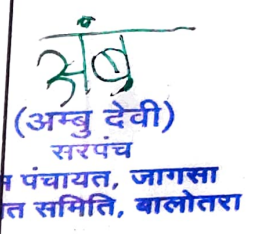 अंबु
(अम्बु देवी)
सरपंच
पंचायत, जागसा
समिति, बालोतरा